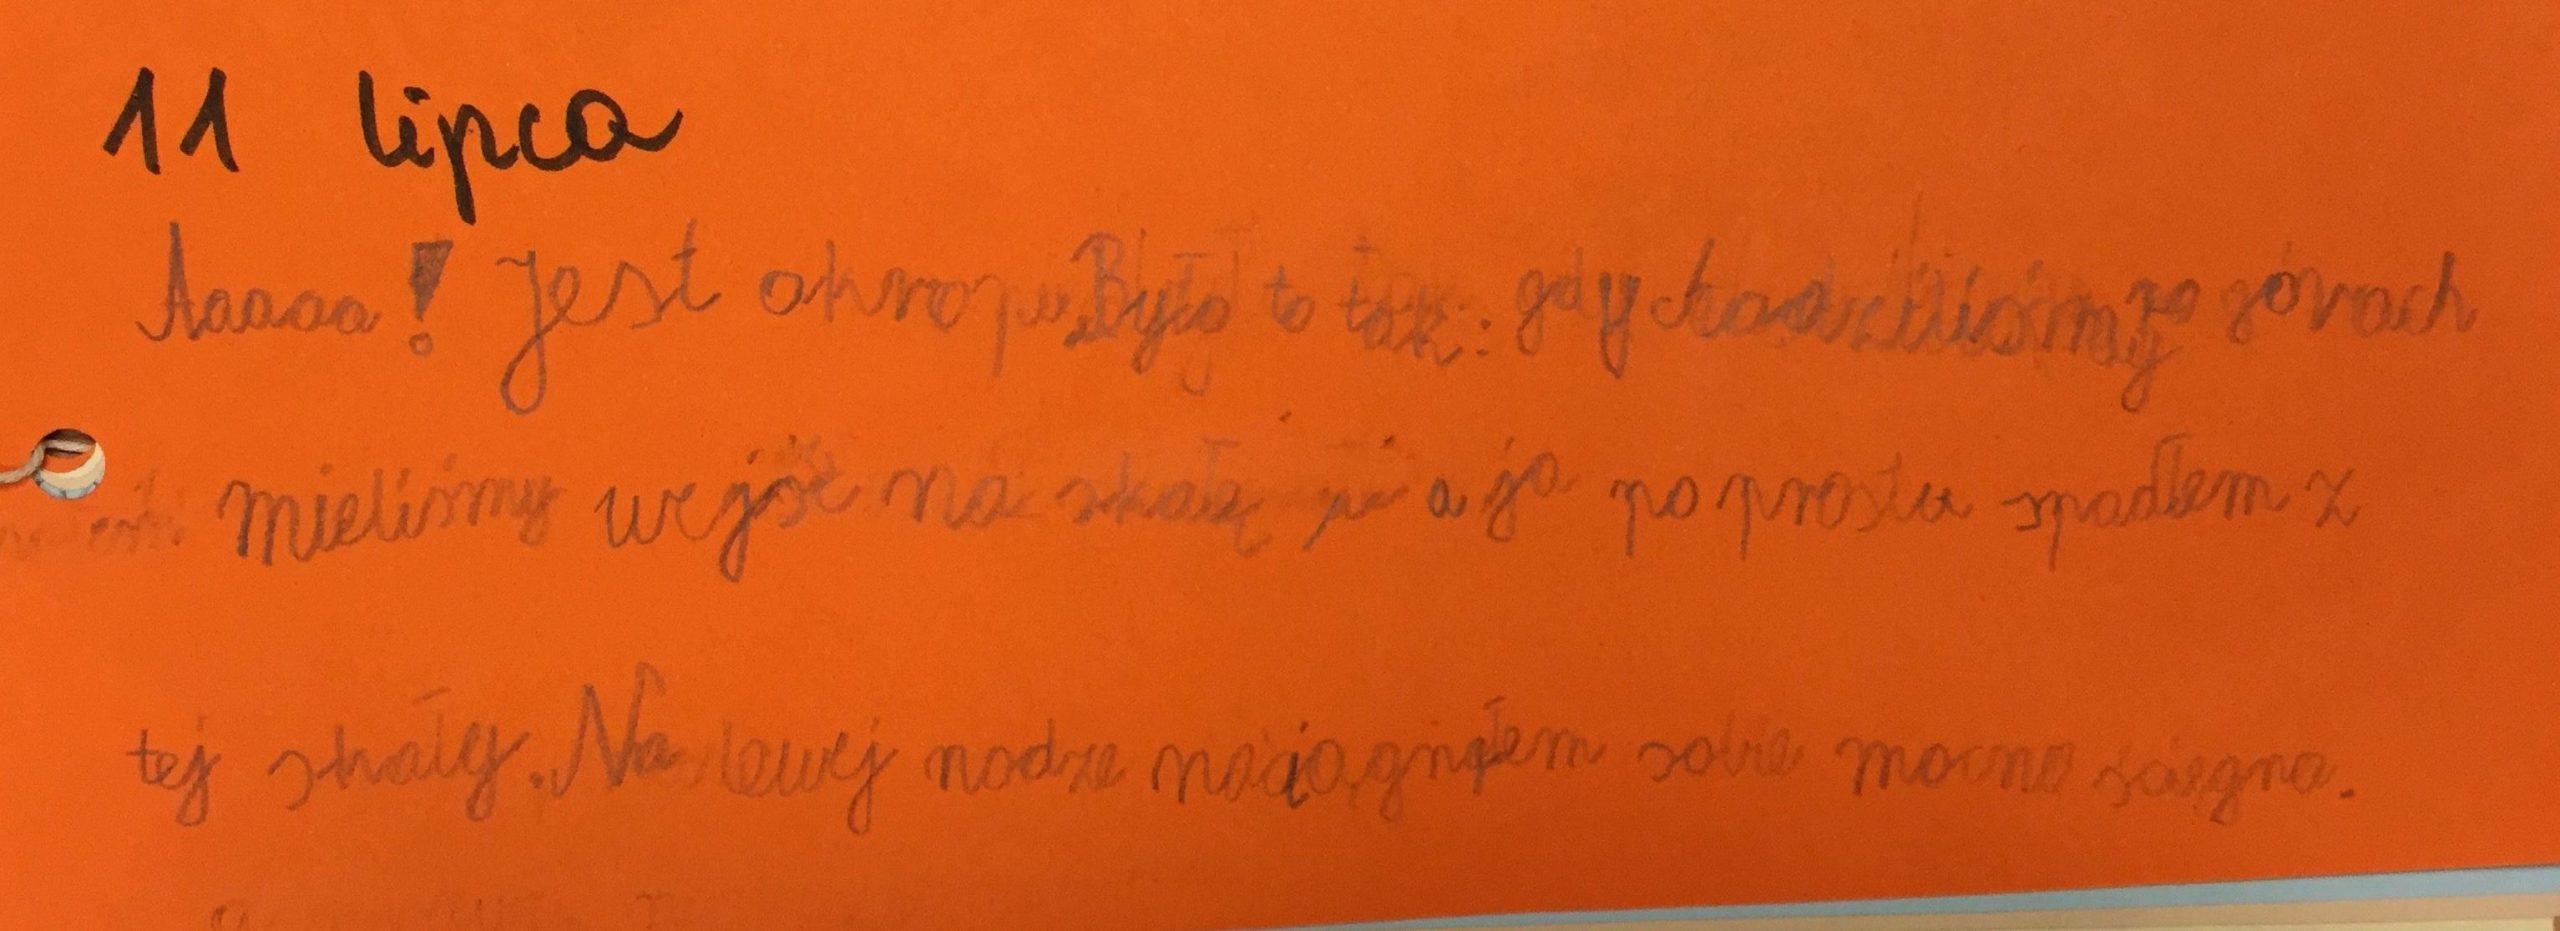 11 lipca
Aaaaa! Jest okropnie. Było to tak: gdy chodziliśmy po górach
mieliśmy wejść na skałę a ja po prostu spadłem z
tej skały. Na lewej nodze naciągnąłem sobie mocno ścięgna.